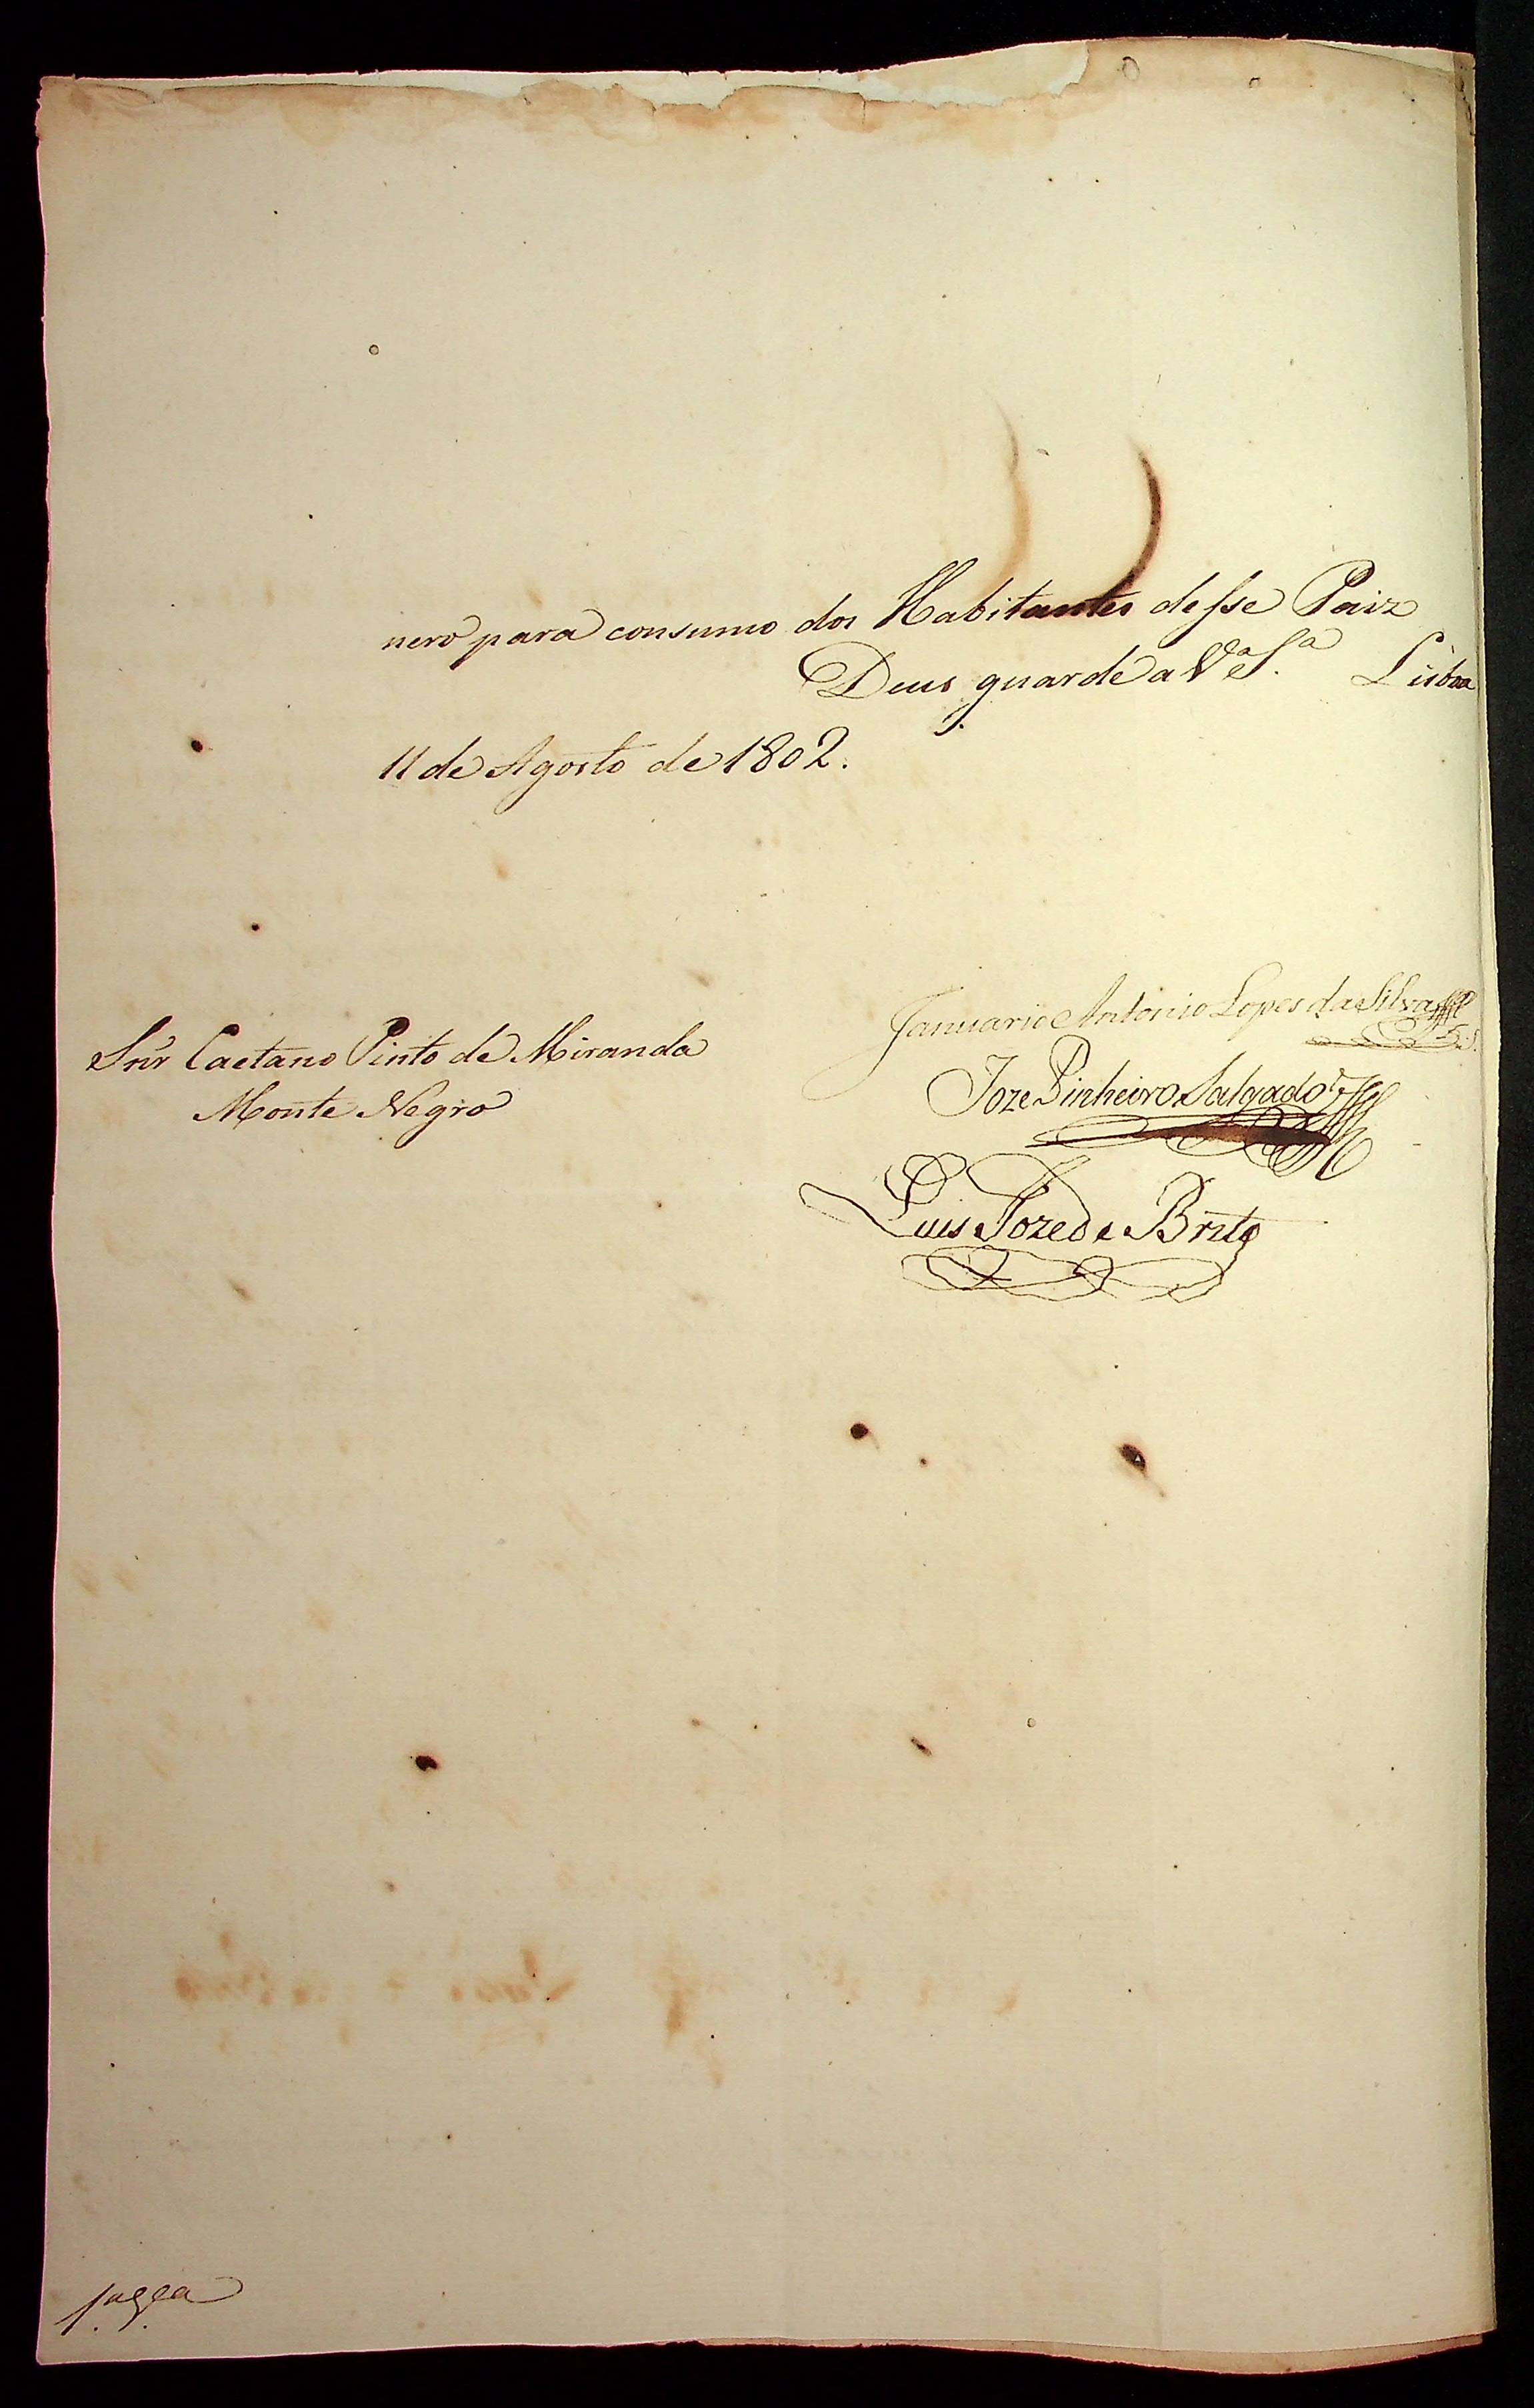 nero para consumo dos Habitantes desse Paiz
Deus guarde a V.ª S.ª Lisboa
11 de Agosto de 1802.
Januario Antonio Lopes da Silva
Snr Caetano Pinto de Miranda
Joze Pinheiro Salgado
Monte Negro
Luis Joze de Brito